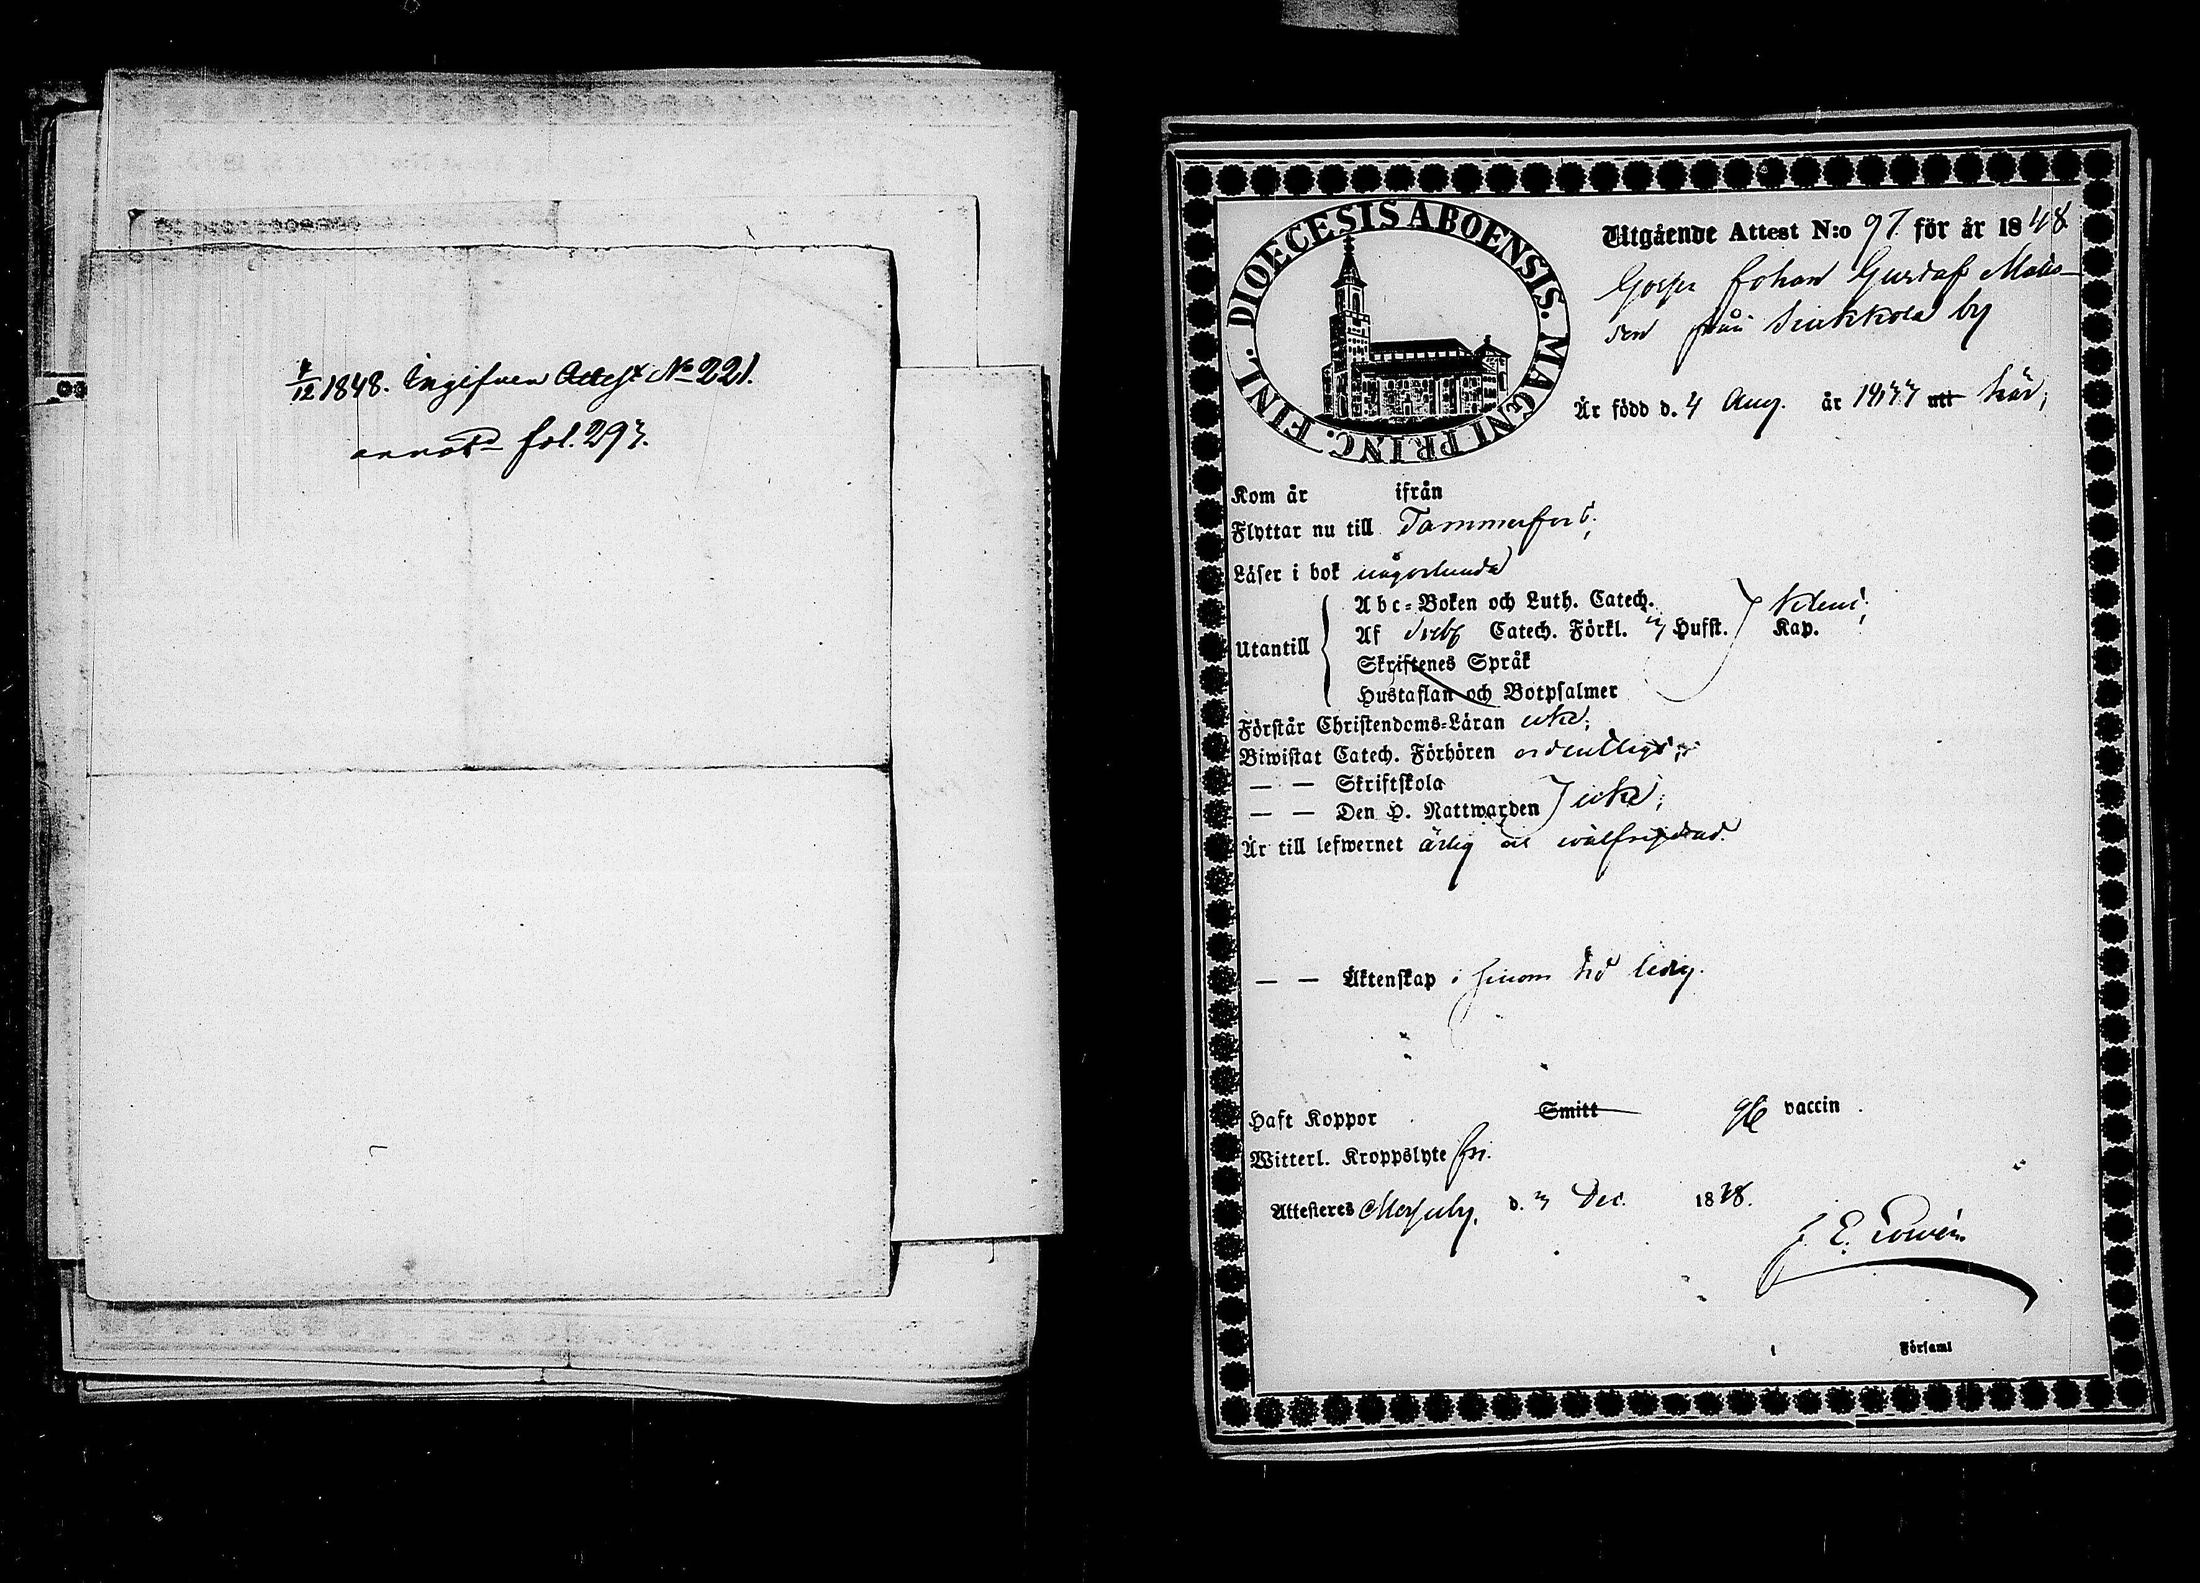 4/12 1848. Ingifven Attest No 221.
annot. fol. 293.
DIOECESIS ABOENSIS. MAGNI PRINC. FINL.
Utgående Attest N:o 97. för år 1848
Johan Gustaf Matts-
son från by
Är född d. 4 Aug. år utt här;
Kom år ifrån
Flyttar nu till Tammerfors;
Läser i bok någorlunda
Utantill
Abc=Boken och Luth. Catech.
Af Catech. Förkl. Husst. Kap.
Skriftenes Språk
Hustaflan och Botpsalmer
Förstår Christendoms=Läran icke;
Biwistat Catech. Förhören ordentligt;
— — Skriftskola
— — Den H. Nattwarden icke;
Är till lefwernet ärlig och wälfrejdad.
— — Äktenskap ledig.
Haft Koppor Smitt vaccin
Witterl. Kroppslyte fri.
Attesteres d. 3 Dec. 1848.
J. E.
Församl